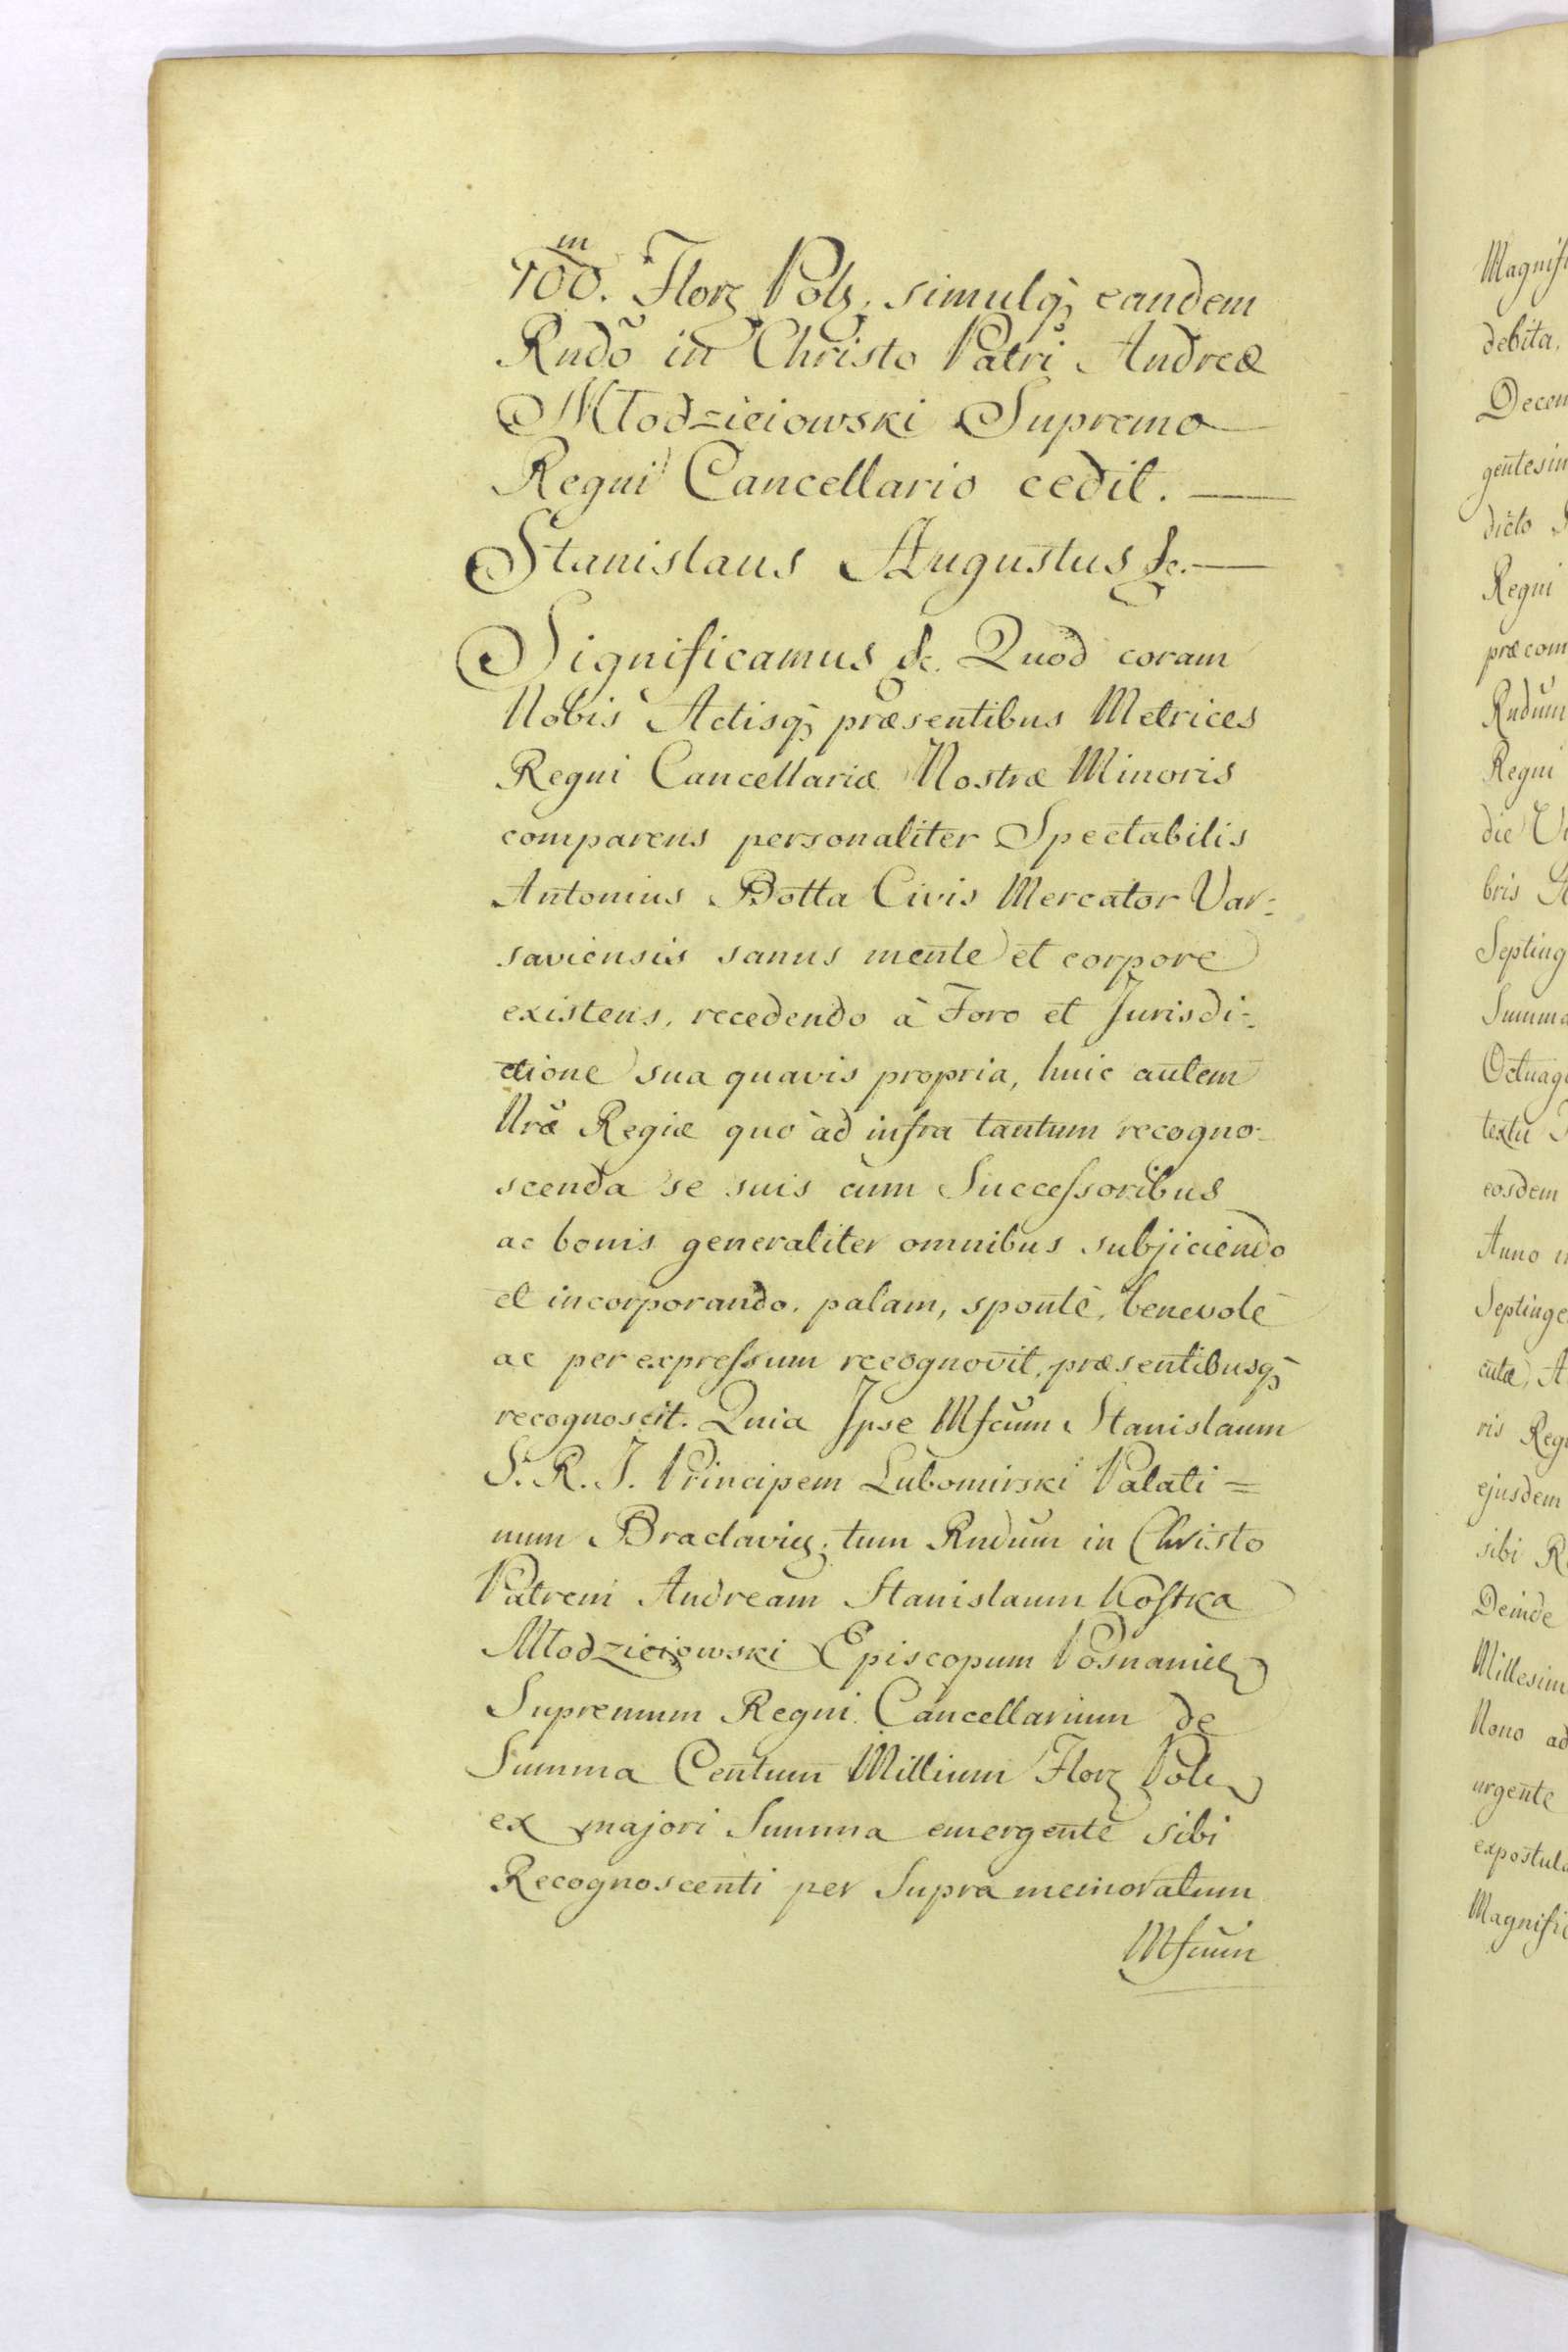 100.ᵐ Florz Pols. simulq; eandem
Rndõ in Christo Patri Andreæ
Młodzieiowski Supremo
Regni Cancellario cedit. —
Stanislaus Augustus &c. —
Significamus &c. Quod coram
Nobis Actisq; præsentibus Metrices
Regni Cancellariæ Nostræ Minoris
comparens personaliter Spectabilis
Antonius Botta Civis Mercator Var=
saviensis sanus mente et corpore
existens, recedendo à Foro et Jurisdi=
ctione sua quavis propria, huic autem
Nræ Regiæ quò ad infra tantum recogno=
scenda se suis cum Successoribus
ac bonis generaliter omnibus subjiciendo
et incorporando, palam, spontè, benevolè
ac per expressum recognovit, præsentibusq;
recognoscit. Quia Ipse Mfcum Stanislaum
S. R. J. Principem Lubomirski Palati=
num Braclavieñ; tum Rndum in Christo
Patrem Andream Stanislaum Kostka
Młodzieiowski Episcopum Posnanieñ
Supremum Regni Cancellarium de
Summa Centum Millium Florz Pole
ex majori Summa emergente sibi
Recognoscenti per Supra memoratum
Mfcum
Magnifi
debita,
Decem
gentesim
dicto
Regni
præcom
Rndum
Regni
die
bris
Septing
Summa
Octuag
textu
eosdem
Anno
Septinge
cutæ, A
ris Reg
ejusdem
sibi R
Deinde
Millesim
Nono ad
urgente
expostula
Magnific